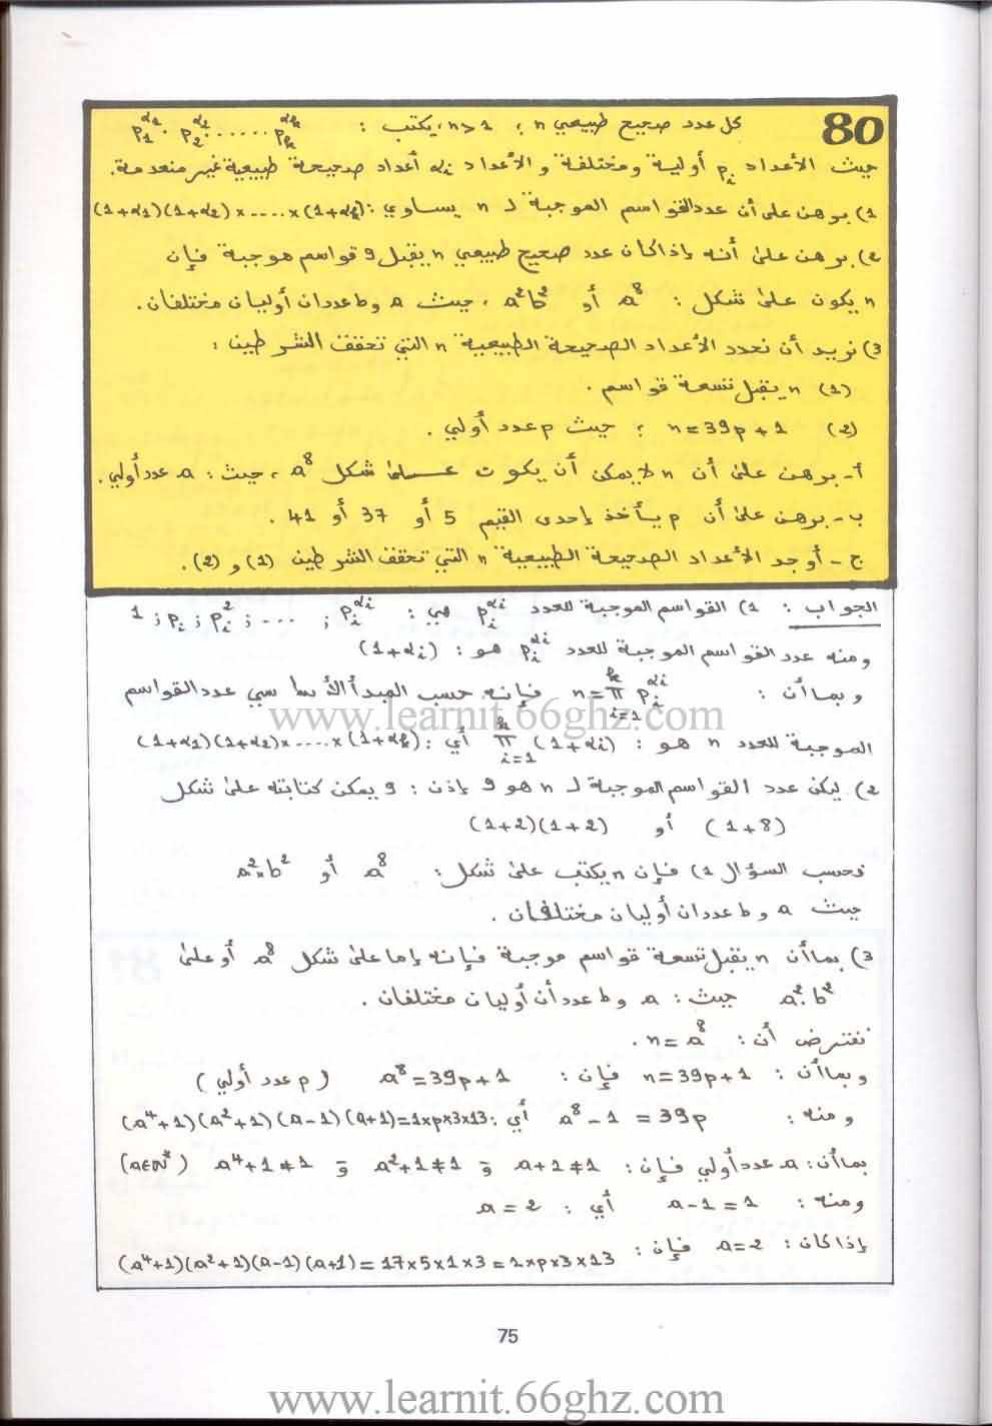 80
كل عدد صحيح طبيعي n ؛ n>1، يكتب : p₁^α₁ . p₂^α₂ ..... pₖ^αₖ
حيث الأعداد pᵢ أولية ومختلفة و الأعداد αᵢ أعداد صحيحة طبيعية غير منعدمة.
1) برهن على أن عدد القواسم الموجبة لـ n يساوي : (1+α₁)(1+α₂)x....x(1+αₖ)
2) برهن على أنه إذا كان عدد صحيح طبيعي n يقبل 9 قواسم موجبة فإن
n يكون على شكل : a⁸ أو a²b² ، حيث a و b عددان أوليان مختلفان.
3) نريد أن نحدد الأعداد الصحيحة الطبيعية n التي تحقق الشرطين :
(1) n يقبل تسعة قواسم .
(2) n = 39p + 1 ؛ حيث p عدد أولي .
أ- برهن على أن n لا يمكن أن يكون على شكل a⁸ ، حيث : a عدد أولي .
ب- برهن على أن p يأخذ إحدى القيم 5 أو 37 أو 41 .
ج - أوجد الأعداد الصحيحة الطبيعية n التي تحقق الشرطين (1) و (2) .
الجواب : 1) القواسم الموجبة للعدد pᵢ^αᵢ هي : 1 ; pᵢ ; pᵢ² ; ... ; pᵢ^αᵢ
ومنه عدد القواسم الموجبة للعدد pᵢ^αᵢ هو : (1+αᵢ)
و بما أن : n = π_{i=1}^{k} pᵢ^αᵢ فإنه حسب المبدأ الأساسي عدد القواسم
الموجبة للعدد n هو : π_{i=1}^{k} (1+αᵢ) أي : (1+α₁)(1+α₂)x....x(1+αₖ)
2) ليكن عدد القواسم الموجبة لـ n هو 9 إذن : 9 يمكن كتابته على شكل
(1+8) أو (1+2)(1+2)
فحسب السؤال 1) فإن n يكتب على شكل : a⁸ أو a²xb²
حيث a و b عددان أوليان مختلفان .
3) بما أن n يقبل تسعة قواسم موجبة فإنه إما على شكل a⁸ أو على
a².b² حيث : a و b عددان أوليان مختلفان .
نفترض أن : n = a⁸ .
وبما أن : n = 39p+1 فإن : a⁸ = 39p+1 (p عدد أولي)
ومنه : a⁸ - 1 = 39p أي : (a⁴+1)(a²+1)(a-1)(a+1)=1xpx3x13
بما أن : a عدد أولي فإن : a+1≠1 و a²+1≠1 و a⁴+1≠1 (a∈ℕ*)
ومنه : a-1=1 أي : a=2
إذا كان : a=2 فإن : (a⁴+1)(a²+1)(a-1)(a+1) = 17x5x1x3 = 1xpx3x13
www.learnit.66ghz.com
75
www.learnit.66ghz.com